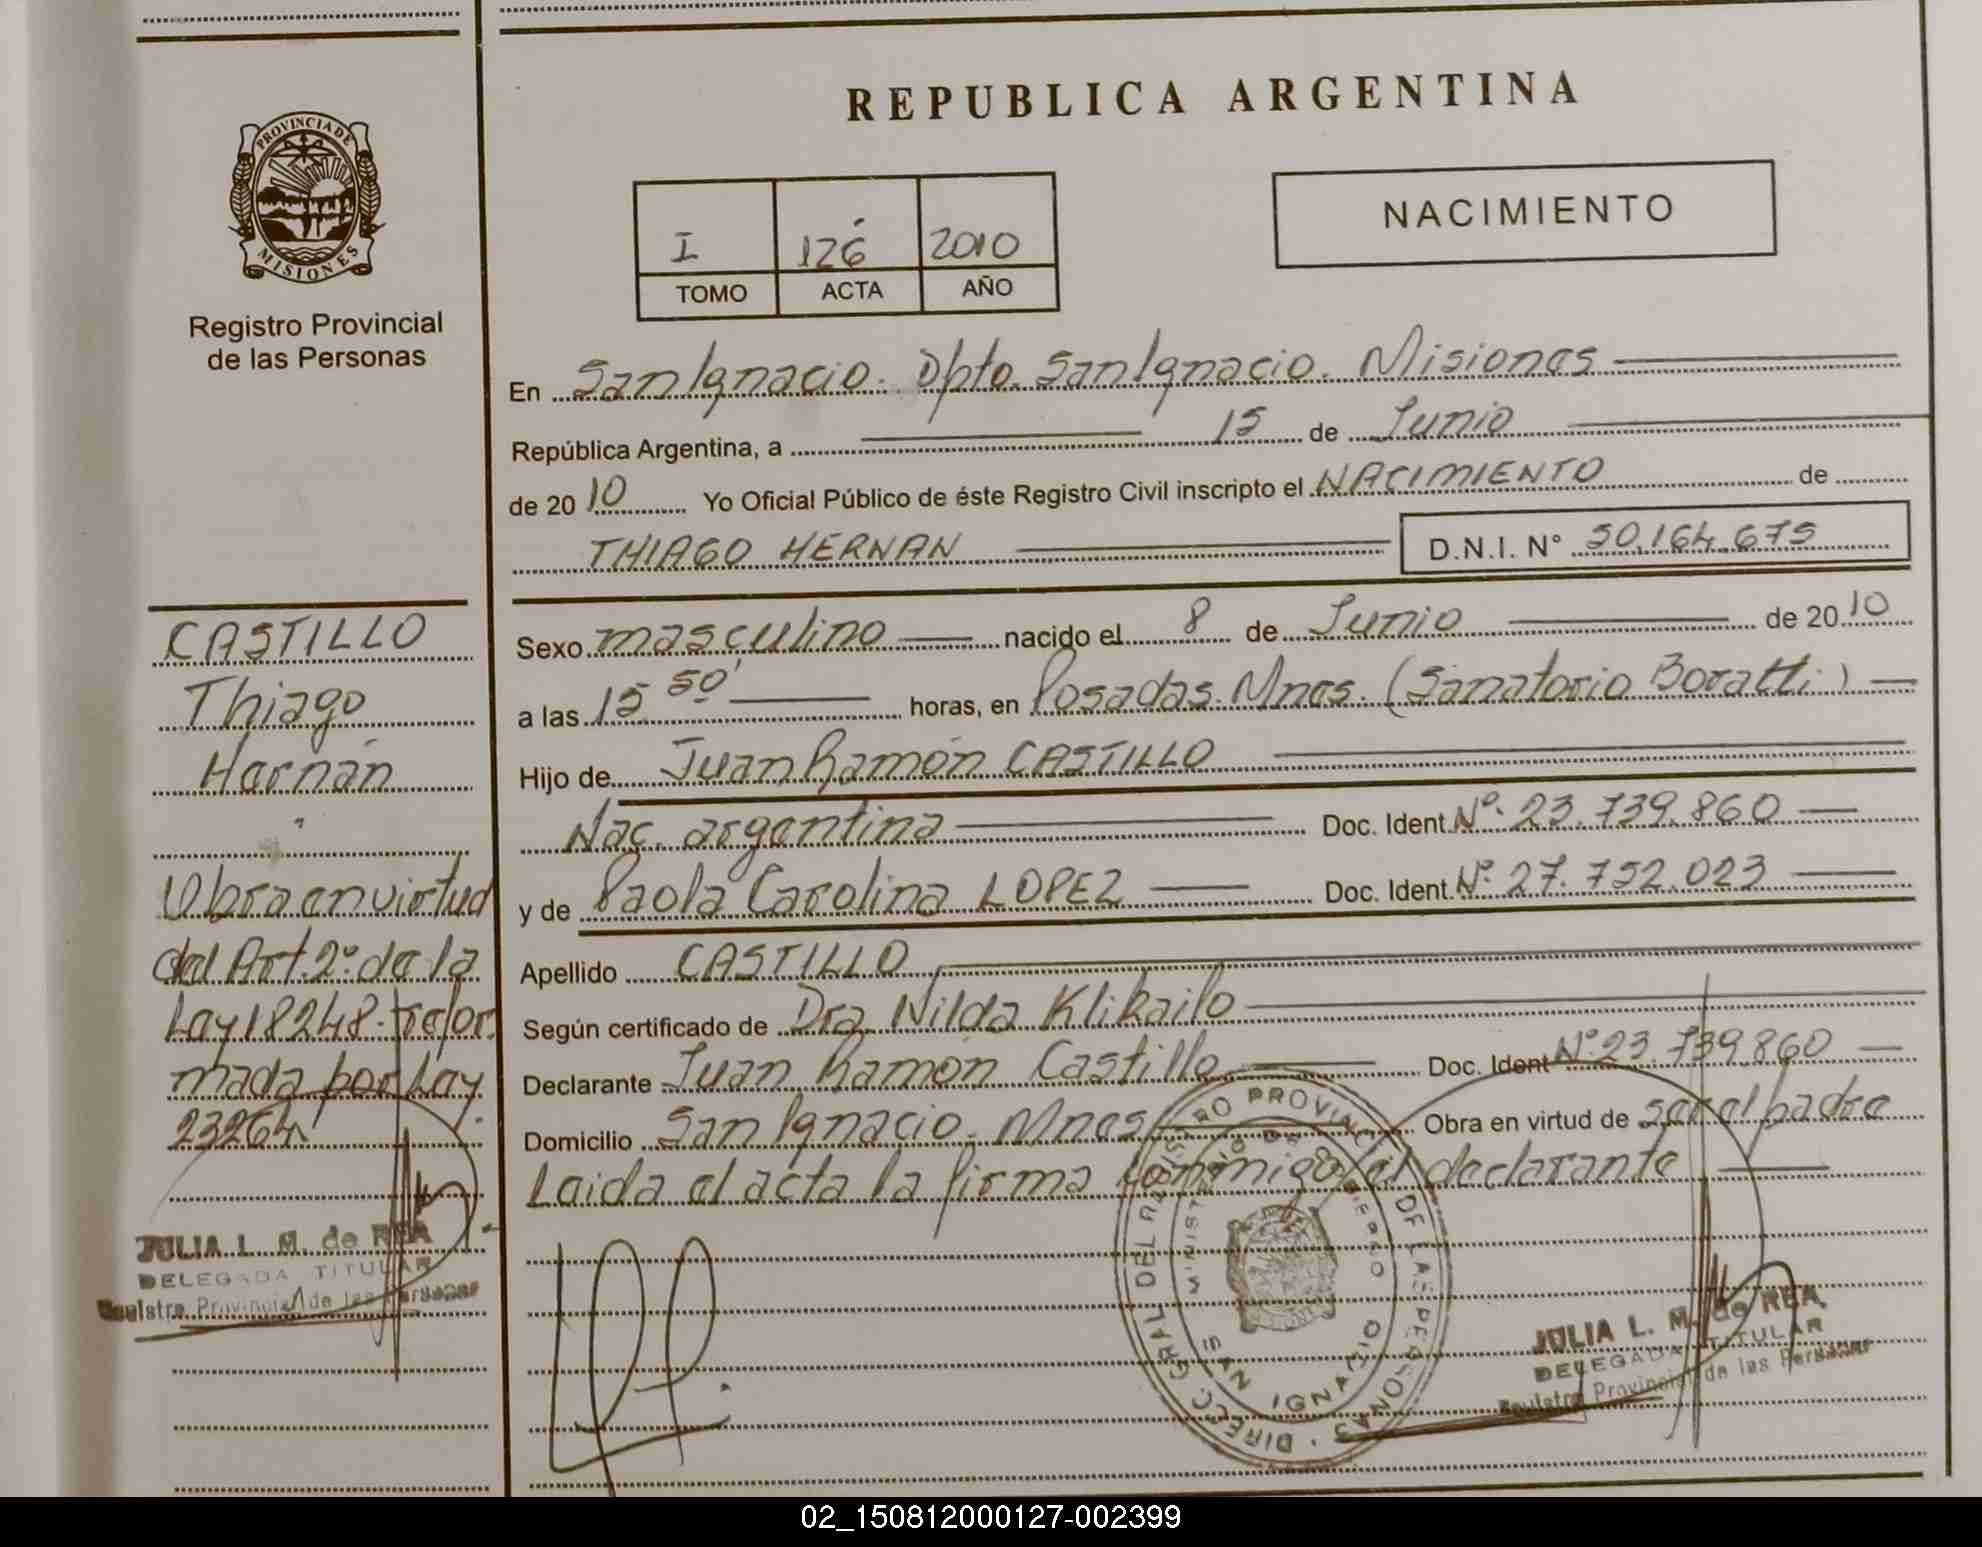 PROVINCIA DE
MISIONES
Registro Provincial
de las Personas
CASTILLO
Thiago
Hernán
Obra en virtud
del Art. 2º de la
Ley 18248 - refor
mada por Ley
23264
JULIA L. M. de REA
DELEGADA TITULAR
Registro Provincial de las Personas
REPUBLICA ARGENTINA
I 126 2010
TOMO ACTA AÑO
NACIMIENTO
En San Ignacio. Dpto. San Ignacio. Misiones
República Argentina, a 15 de Junio
de 2010 Yo Oficial Público de éste Registro Civil inscripto el NACIMIENTO de
THIAGO HERNAN D.N.I. N° 50.164.675
Sexo masculino nacido el 8 de Junio de 2010
a las 15 50' horas, en Posadas. Mnes. (Sanatorio Boratti)
Hijo de Juan Ramón CASTILLO
Nac. argentina Doc. Ident. Nº. 23.739.860
y de Paola Carolina LOPEZ Doc. Ident. Nº. 27.752.023
Apellido CASTILLO
Según certificado de Dra. Nilda Klikailo
Declarante Juan Ramón Castillo Doc. Ident Nº 23.739.860
Domicilio San Ignacio. Mnes Obra en virtud de ser el padre
Leida el acta la firma conmigo el declarante
DIRECC. GRAL. DEL REGISTRO PROVINCIAL DE LAS PERSONAS
MINISTERIO DE GOBIERNO
SAN IGNACIO
JULIA L. M. de REA
DELEGADA TITULAR
Registro Provincial de las Personas
02_150812000127-002399